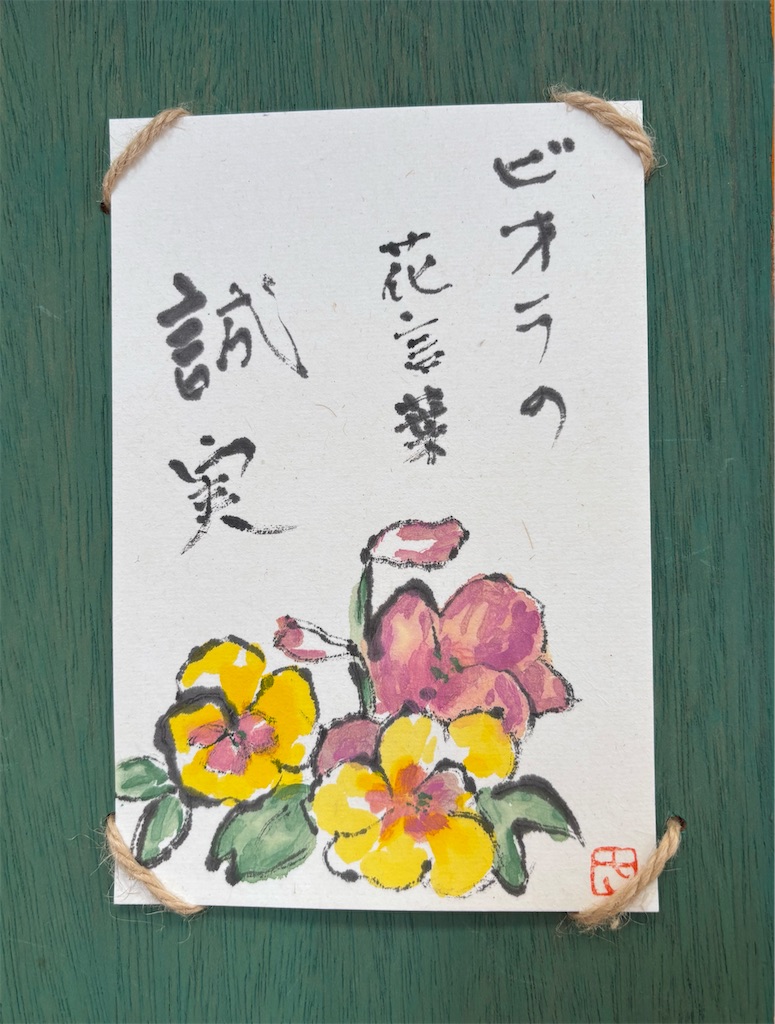 ビオラの
花言葉
誠実